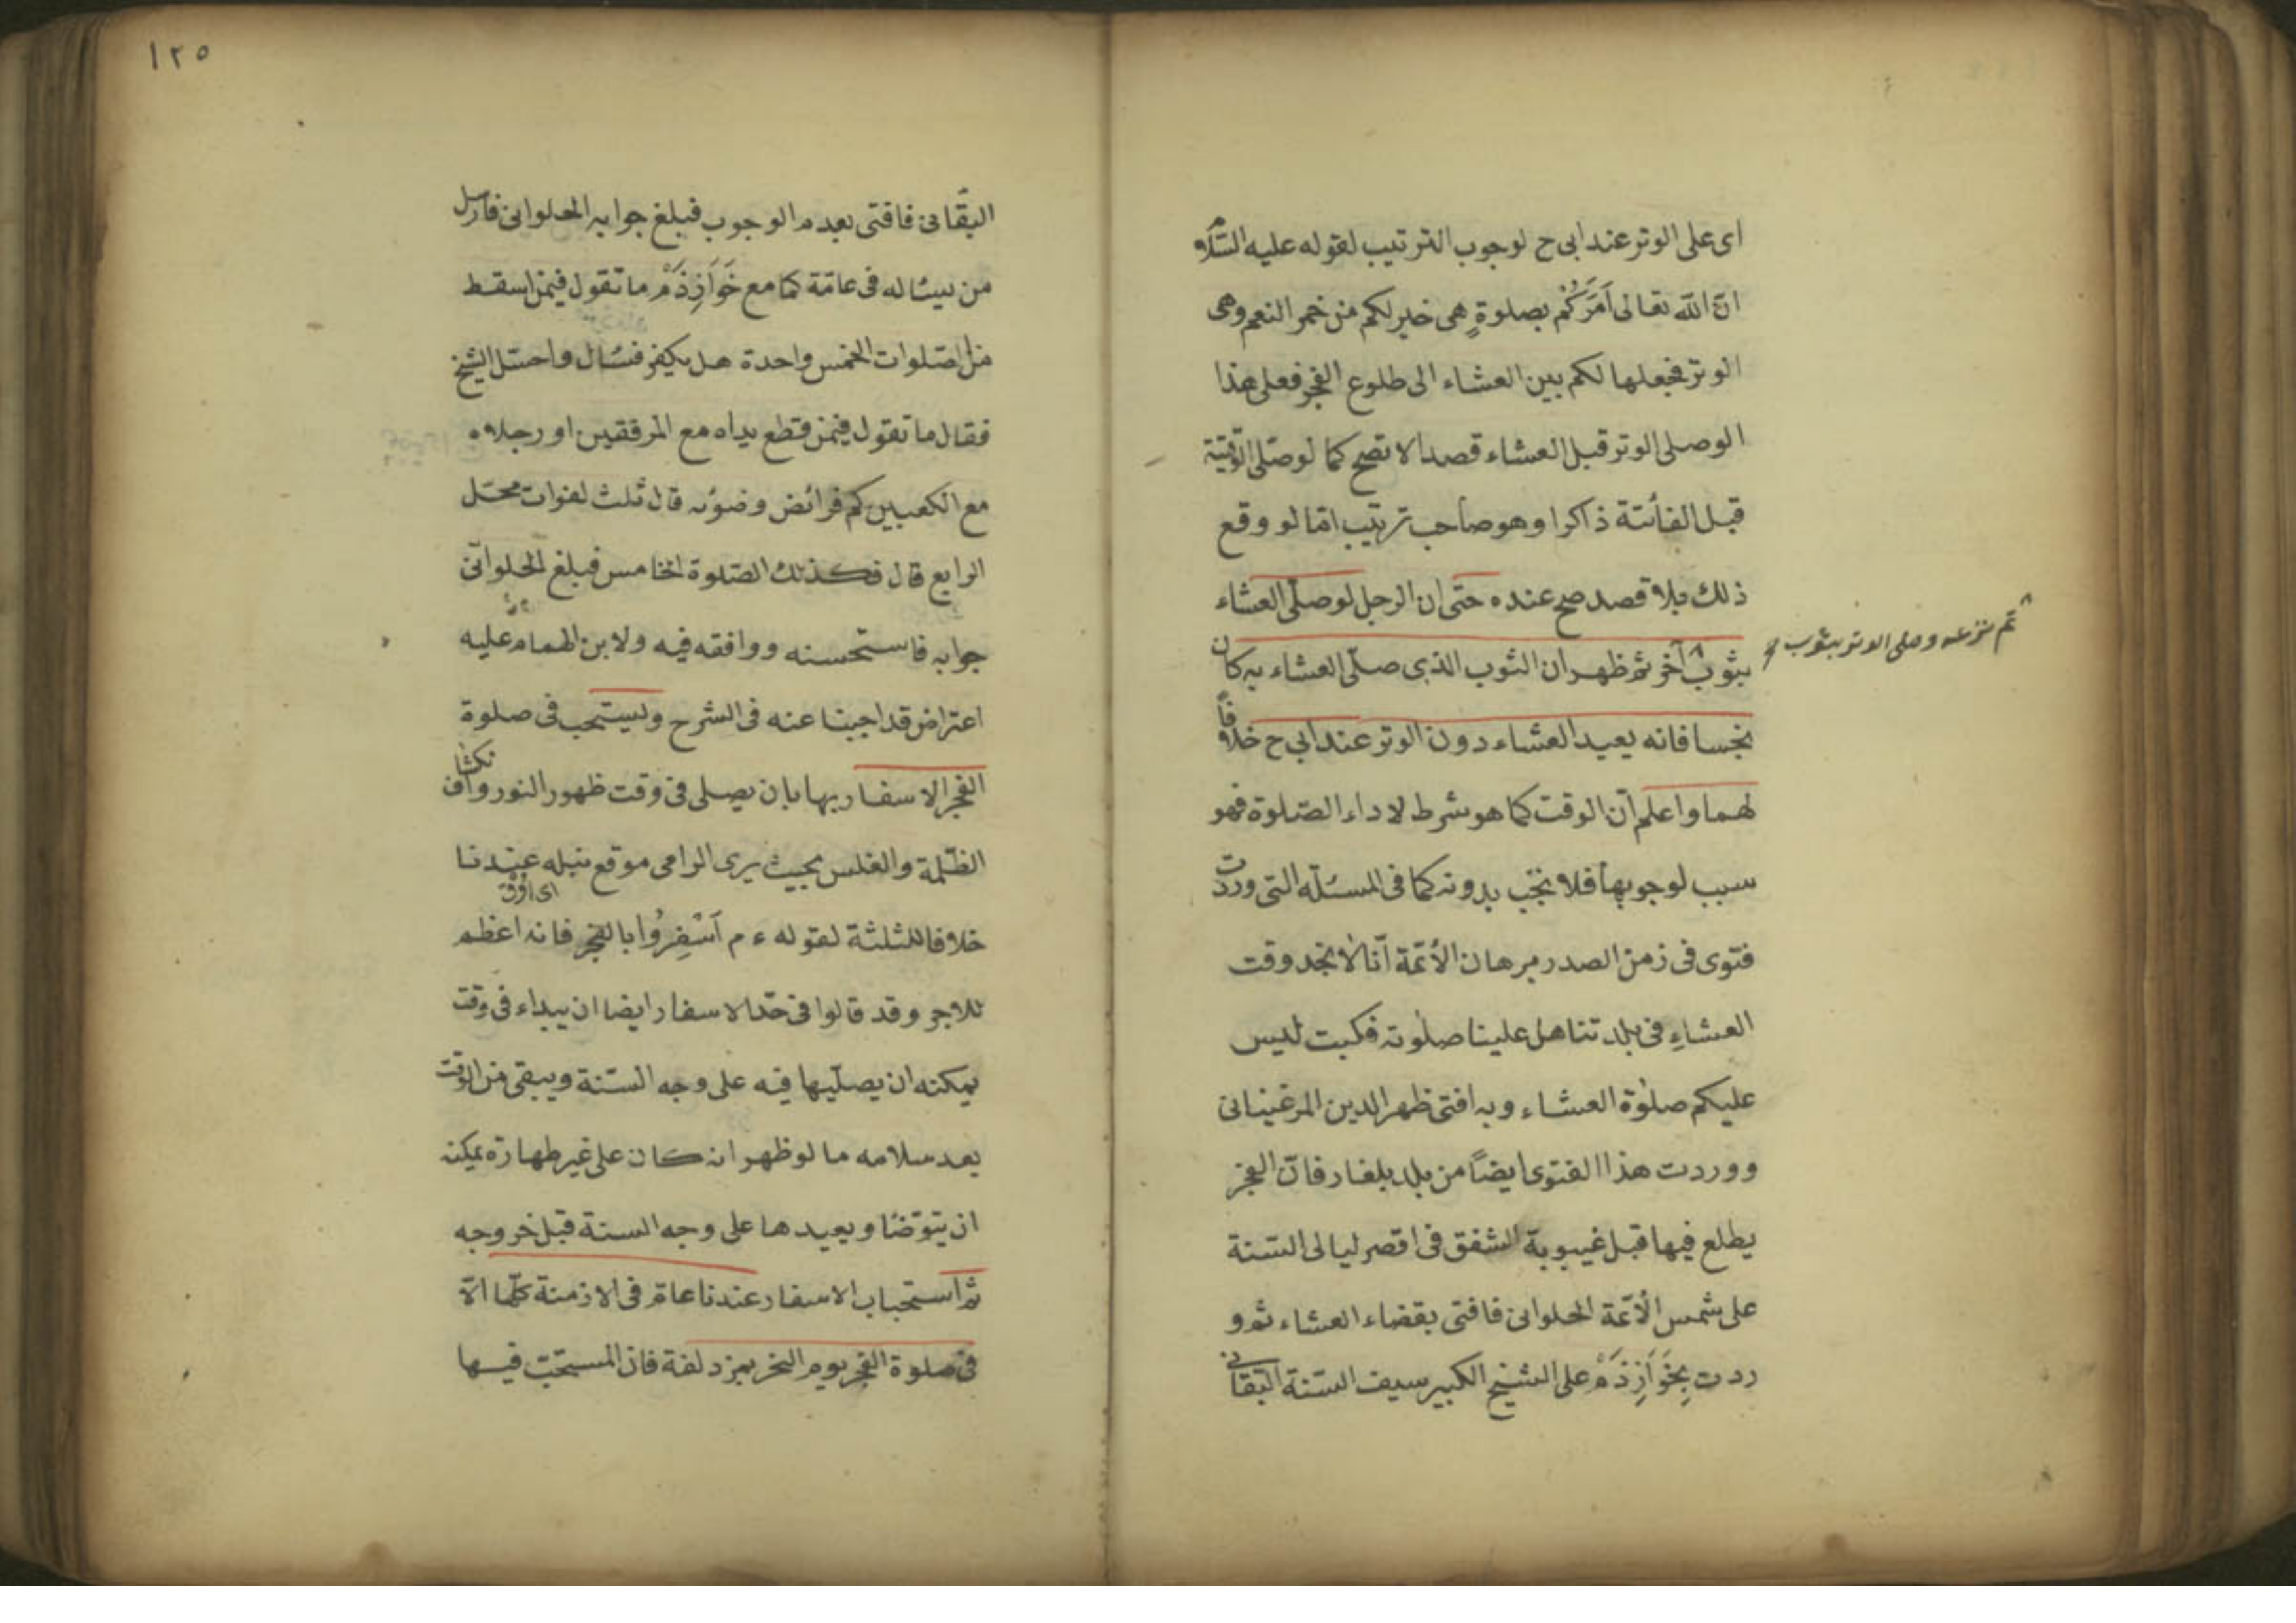 اى على الوتر عند ابى ح لوجوب الترتيب لقوله عليه السلام
ان الله تعالى اَمَرَكُمْ بصلوةٍ هى خير لكم من حمر النعم وهى
الوتر فجعلها لكم بين العشاء الى طلوع الفجر فعلى هذا
الوصلى الوتر قبل العشاء قصدا لا تصح كما لو صلى الوقتية
قبل الفائتة ذاكرا وهو صاحب ترتيب امّا لو وقع
ذلك بلا قصد صح عنده حتى ان الرجل لو صلى العشاء
بثوب آخر ثم ظهر ان الثوب الذى صلّى العشاء به كان
ثم نزعه وصلى الوتر بثوب صح
نجسا فانه يعيد العشاء دون الوتر عند ابى ح خلافاً
لهما واعلم انّ الوقت كما هو شرط لاداء الصّلوة فهو
سبب لوجوبها فلا تجب بدونه كما فى المسئلة التى وردت
فتوى فى زمن الصدر برهان الأئمّة انّا لا نجد وقت
العشاءِ فى بلدتنا هل علينا صلوته فكتب ليس
عليكم صلوة العشاء وبه افتى ظهر الدين المرغينانى
ووردت هذا الفتوى ايضاً من بلد بلغار فانّ الفجر
يطلع فيها قبل غيبوبة الشفق فى اقصر ليالى السّنة
على شمس الأئمّة الحلوانى فافتى بقضاء العشاء ثم و
ردت بِخَوَازِذَمْ على الشيخ الكبير سيف السّنة البقانى
١٢٥
البقّانى فافتى بعدم الوجوب فبلغ جوابه الحلوانى فارسل
من يسئاله فى عامّة كما مع خَوَازِذَمْ ما تقول فيمن اسقط
من الصّلوات الخمس واحدة هل يكفر فسئال واحسّ الشيخ
فقال ما تقول فيمن قطع يداه مع المرفقين او رجلاه
مع الكعبين كم فرائض وضوئه قال ثلث لفوات محلّ
الرابع قال فكذلك الصّلوة الخامس فبلغ الحلوانّى
جوابه فاستحسنه ووافقه فيه ولابن الهمام عليه
اعتراض قد اجبنا عنه فى الشرح ويستحب فى صلوة
الفجر الاسفار بها بان يصلى فى وقت ظهور النور وانكشاف
الظّلمة والغلس بحيث يرى الرامى موقع نبله عندنا
خلافا للثلثة لقوله ء م اَسْفِرُوا بالفجر فانه اعظم
للاجر وقد قالوا فى حدّ الاسفار ايضا ان يبداء فى وقت
يمكنه ان يصلّيها فيه على وجه السّنة ويبقى من الوقت
بعد سلامه ما لو ظهر انه كان على غير طهارة يمكنه
ان يتوضّا ويعيدها على وجه السنة قبل خروجه
ثم استحباب الاسفار عندنا عام فى الازمنة كلّها الّا
فى صلوة الفجر يوم النحر بمزدلفة فان المستحبّ فيها